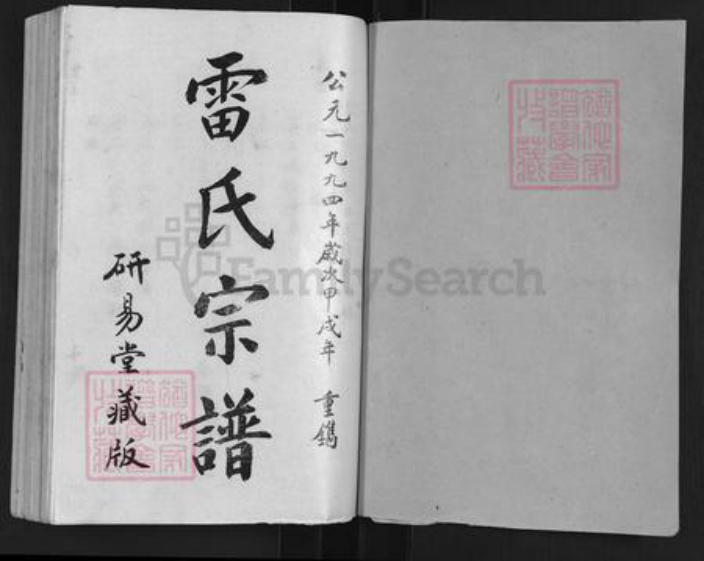 公元一九九四年歲次甲戌年 重鐫
雷氏宗譜
研易堂藏版
FamilySearch